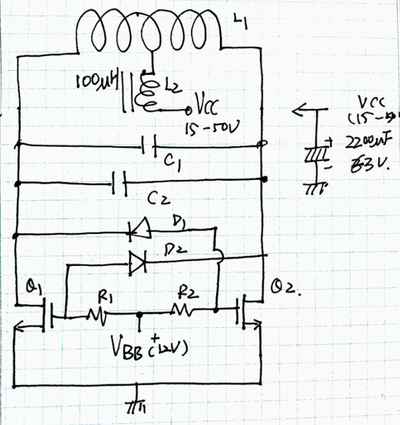 L1
100μH
L2
VCC
15-50V
VCC
2200μF
C1
63V.
C2
D1
D2
Q1
Q2.
R1
R2
VBB (+12V)